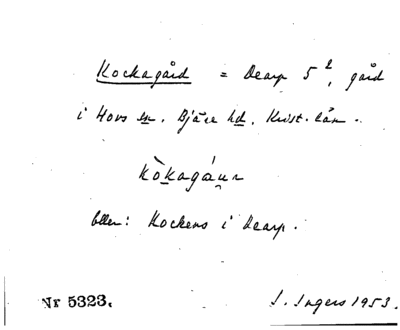 Kockagård = Dearp 5², gård
i Hovs sn. Bjäre hd. Krist. län.
kòkagáur
eller: Kockens i Dearp.
Nr 5323. I. Ingers 1953.